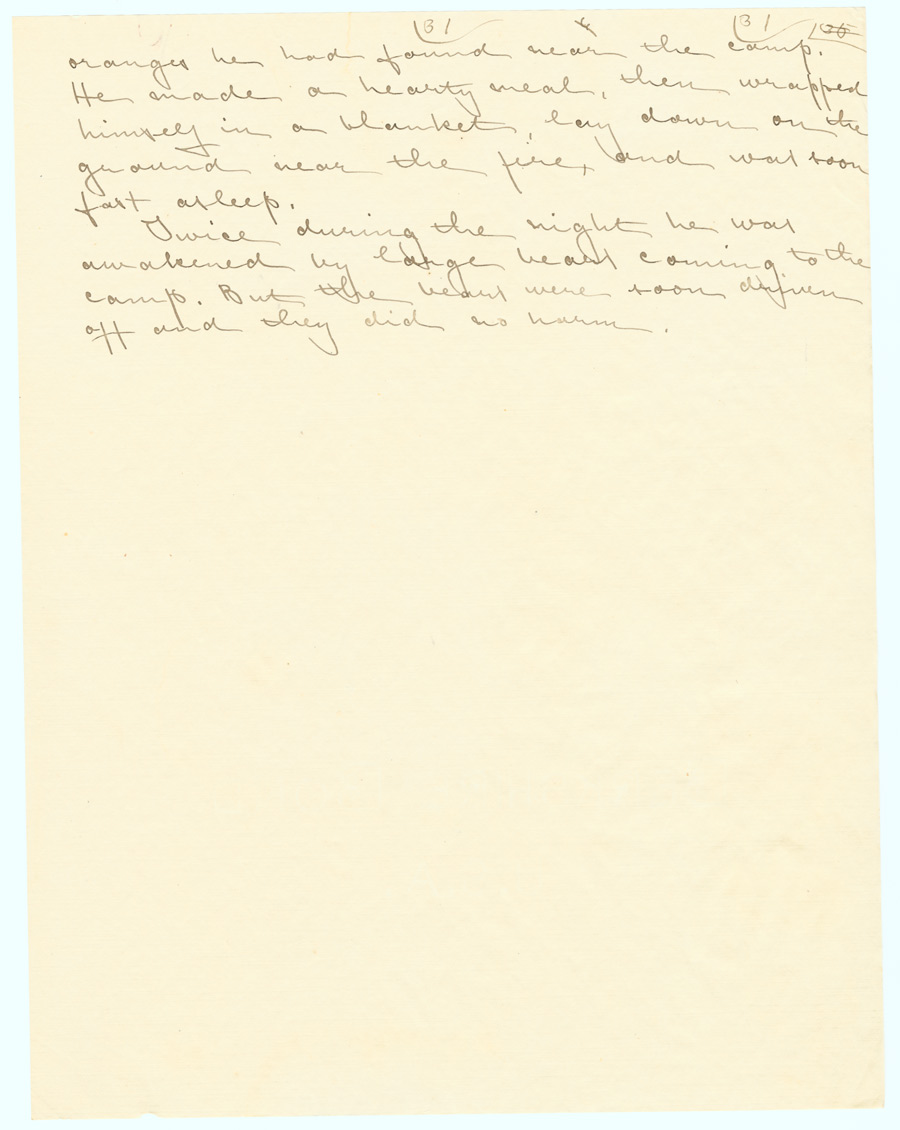 31 31
oranges he had found near the camp.
He made a hearty meal, then wrapped
himself in a blanket, lay down on the
ground near the fire, and was soon
fast asleep.
Twice during the night he was
awakened by large bears coming to the
camp. But the bears were soon driven
off and they did no harm.